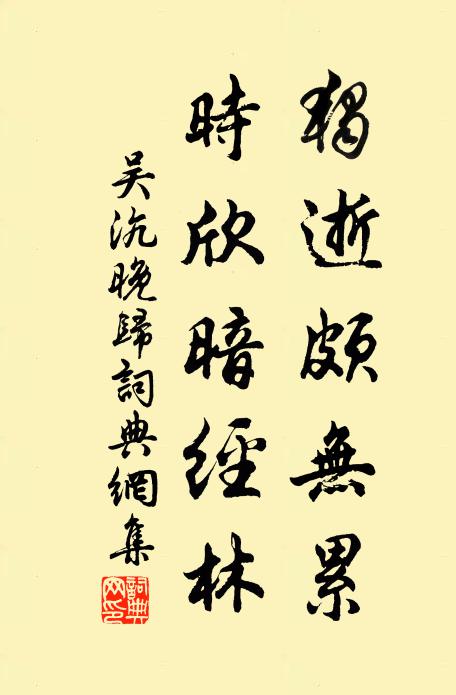 獨逝頗無累
時欣暗經林
吴沆晚歸詞典網集
詞典網印